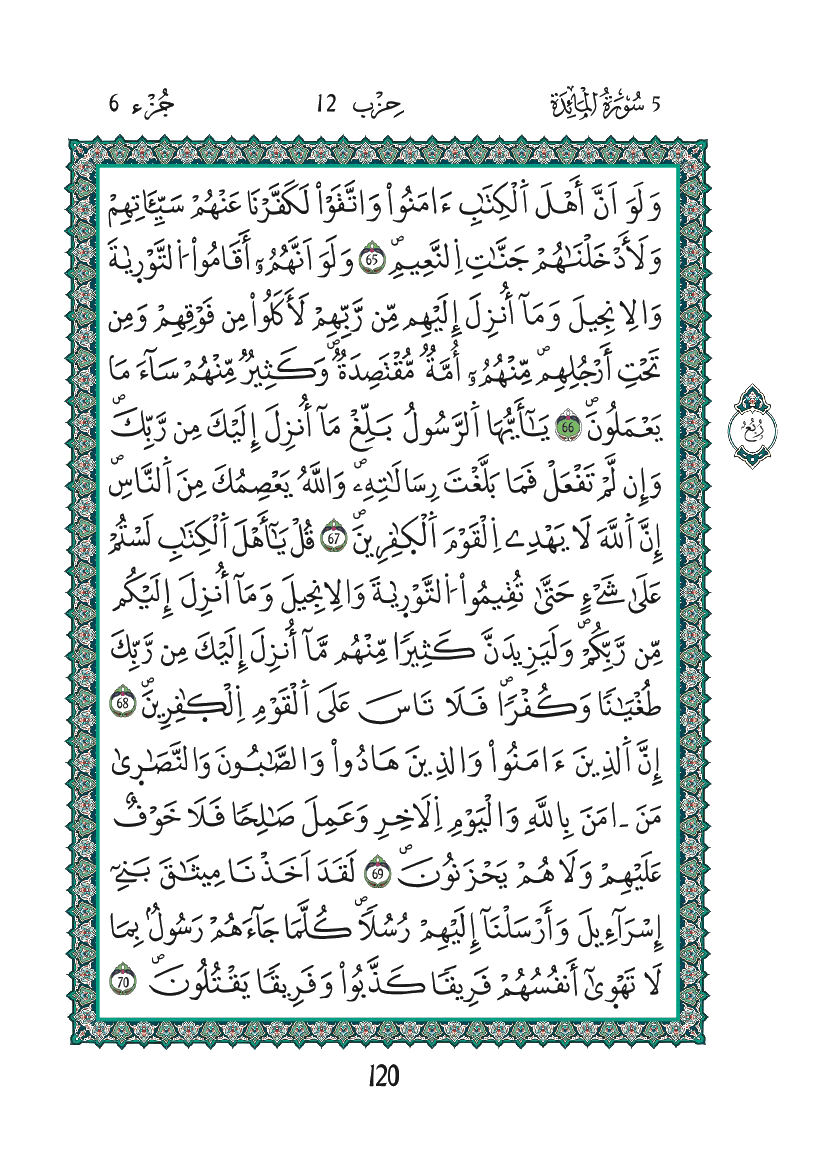 5 سُورَةُ الْمَائِدَة
حِزْب 12
جُزْء 6
وَلَوَ اَنَّ أَهْلَ اَ۬لْكِتَٰبِ ءَامَنُواْ وَاتَّقَوْاْ لَكَفَّرْنَا عَنْهُمْ سَيِّـَٔاتِهِمْ
وَلَأَدْخَلْنَٰهُمْ جَنَّٰتِ اِ۬لنَّعِيمِۖ 65 وَلَوَ اَنَّهُمُۥٓ أَقَامُواْ اُ۬لتَّوْر۪يٰةَ
وَالِانجِيلَ وَمَآ أُنزِلَ إِلَيْهِم مِّن رَّبِّهِمْ لَأَكَلُواْ مِن فَوْقِهِمْ وَمِن
تَحْتِ أَرْجُلِهِمۖ مِّنْهُمُۥٓ أُمَّةٞ مُّقْتَصِدَةٞۖ وَكَثِيرٞ مِّنْهُمْ سَآءَ مَا
يَعْمَلُونَۖ 66 يَٰٓأَيُّهَا اَ۬لرَّسُولُ بَلِّغْ مَآ أُنزِلَ إِلَيْكَ مِن رَّبِّكَۖ
وَإِن لَّمْ تَفْعَلْ فَمَا بَلَّغْتَ رِسَالَٰتِهِۦۖ وَاللَّهُ يَعْصِمُكَ مِنَ اَ۬لنَّاسِۖ
إِنَّ اَ۬للَّهَ لَا يَهْدِے اِ۬لْقَوْمَ اَ۬لْكٰ۪فِرِينَۖ 67 قُلْ يَٰٓأَهْلَ اَ۬لْكِتَٰبِ لَسْتُمْ
عَلَىٰ شَےْءٍ حَتَّىٰ تُقِيمُواْ اُ۬لتَّوْر۪يٰةَ وَالِانجِيلَ وَمَآ أُنزِلَ إِلَيْكُم
مِّن رَّبِّكُمْۖ وَلَيَزِيدَنَّ كَثِيرٗا مِّنْهُم مَّآ أُنزِلَ إِلَيْكَ مِن رَّبِّكَ
طُغْيَٰنٗا وَكُفْرٗاۖ فَلَا تَاسَ عَلَى اَ۬لْقَوْمِ اِ۬لْكٰ۪فِرِينَۖ 68
إِنَّ اَ۬لذِينَ ءَامَنُواْ وَالذِينَ هَادُواْ وَالصَّٰبُونَ وَالنَّصَٰر۪ىٰ
مَنَ ـ امَنَ بِاللَّهِ وَالْيَوْمِ اِ۬لَاخِرِ وَعَمِلَ صَٰلِحٗا فَلَا خَوْفٌ
عَلَيْهِمْ وَلَا هُمْ يَحْزَنُونَۖ 69 لَقَدَ اَخَذْنَا مِيثَٰقَ بَنِےٓ
إِسْرَآءِيلَ وَأَرْسَلْنَآ إِلَيْهِمْ رُسُلٗاۖ كُلَّمَا جَآءَهُمْ رَسُولُۢ بِمَا
لَا تَهْو۪ىٰٓ أَنفُسُهُمْ فَرِيقٗا كَذَّبُواْ وَفَرِيقٗا يَقْتُلُونَۖ 70
رُبُع
120